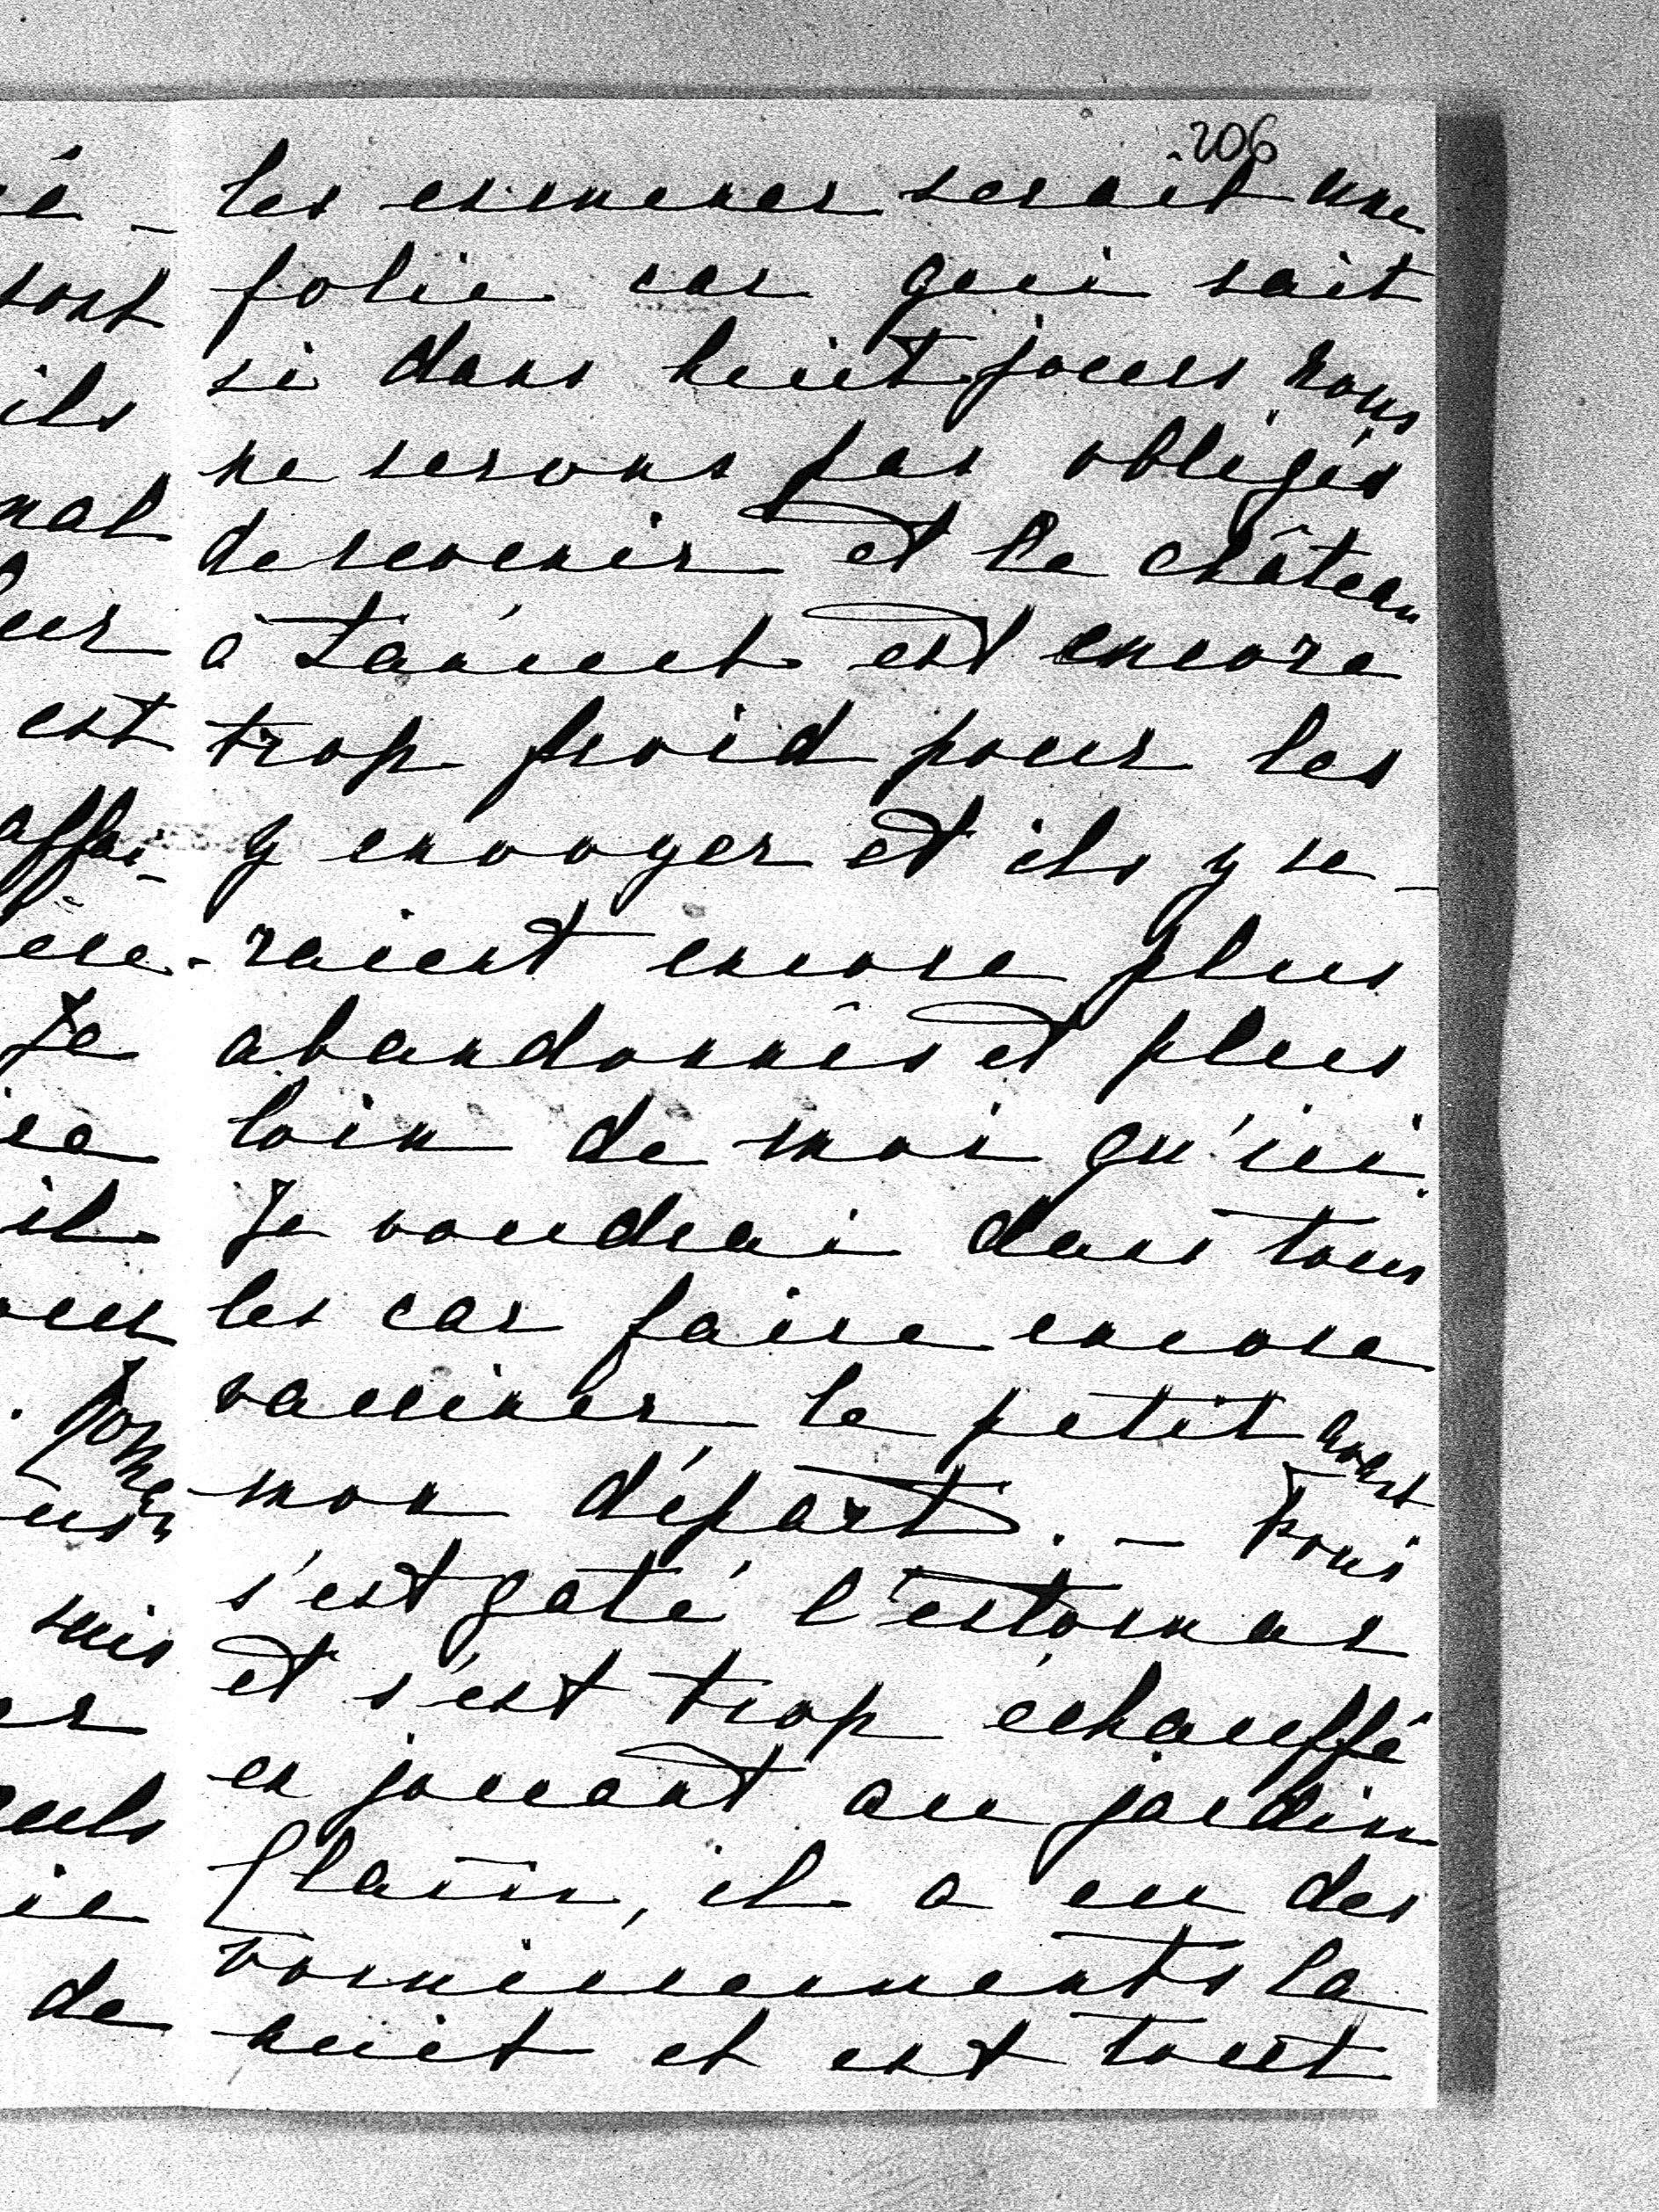 206
les emmener serait une
folie car qui sait
si dans huit jours nous
ne serons pas obligés
de revenir et le château
à Táncut est encore
trop froid pour les
y envoyer et ils y se-
-raient encore plus
abandonnés et plus
loin de moi qu'ici.
Je voudrai dans tous
les cas faire encore
vacciner le petit avant
mon départ. -
s'est gaté l'estomac
et s'est trop échauffé
en jouant au jardin
il a eu des
vomissements la
nuit et est tout
é-
sont
ils
mal
leur
est
affai-
Je
il
suis
de